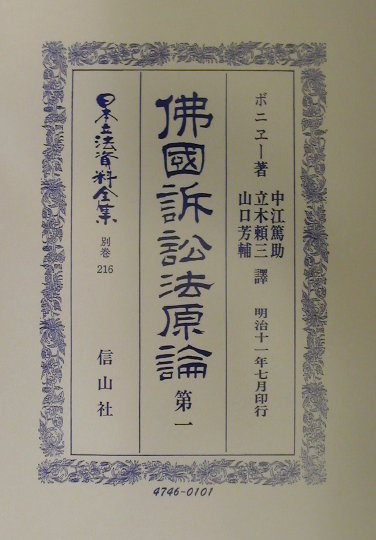 ボニヱー著
中江篤助
立木頼三 譯
山口芳輔
明治十一年七月印行
佛國訴訟法原論 第一
日本立法資料全集 別巻 216
信山社
4746-0101